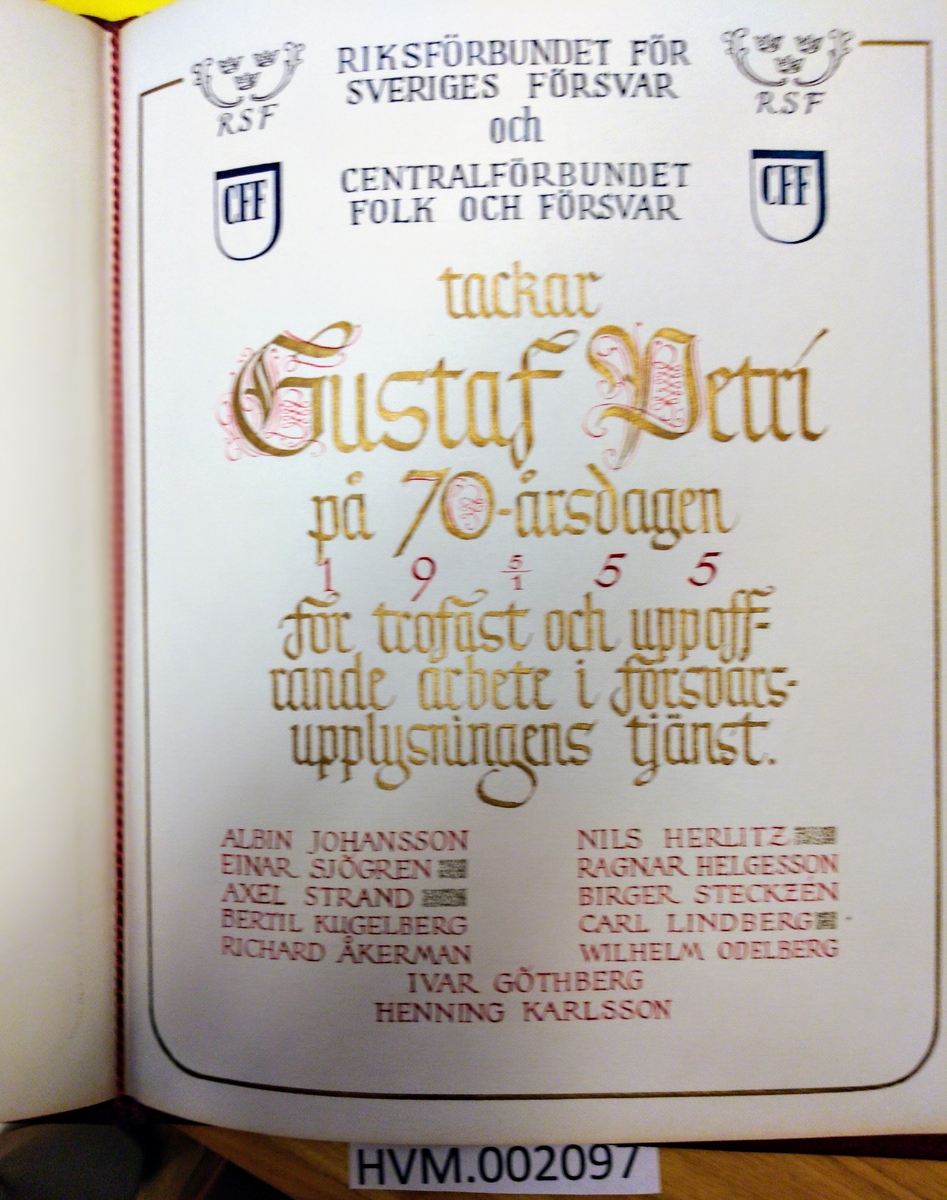 RIKSFÖRBUNDET FÖR
SVERIGES FÖRSVAR
RSF
RSF
och
CFF
CFF
CENTRALFÖRBUNDET
FOLK OCH FÖRSVAR
tackar
Gustaf Petri
på 70-årsdagen
19 5/1 55
för trofast och uppoff-
rande arbete i försvars-
upplysningens tjänst.
ALBIN JOHANSSON
EINAR SJÖGREN
AXEL STRAND
BERTIL KUGELBERG
RICHARD ÅKERMAN
NILS HERLITZ
RAGNAR HELGESSON
BIRGER STECKZÉN
CARL LINDBERG
WILHELM ODELBERG
IVAR GÖTHBERG
HENNING KARLSSON
HVM.002097